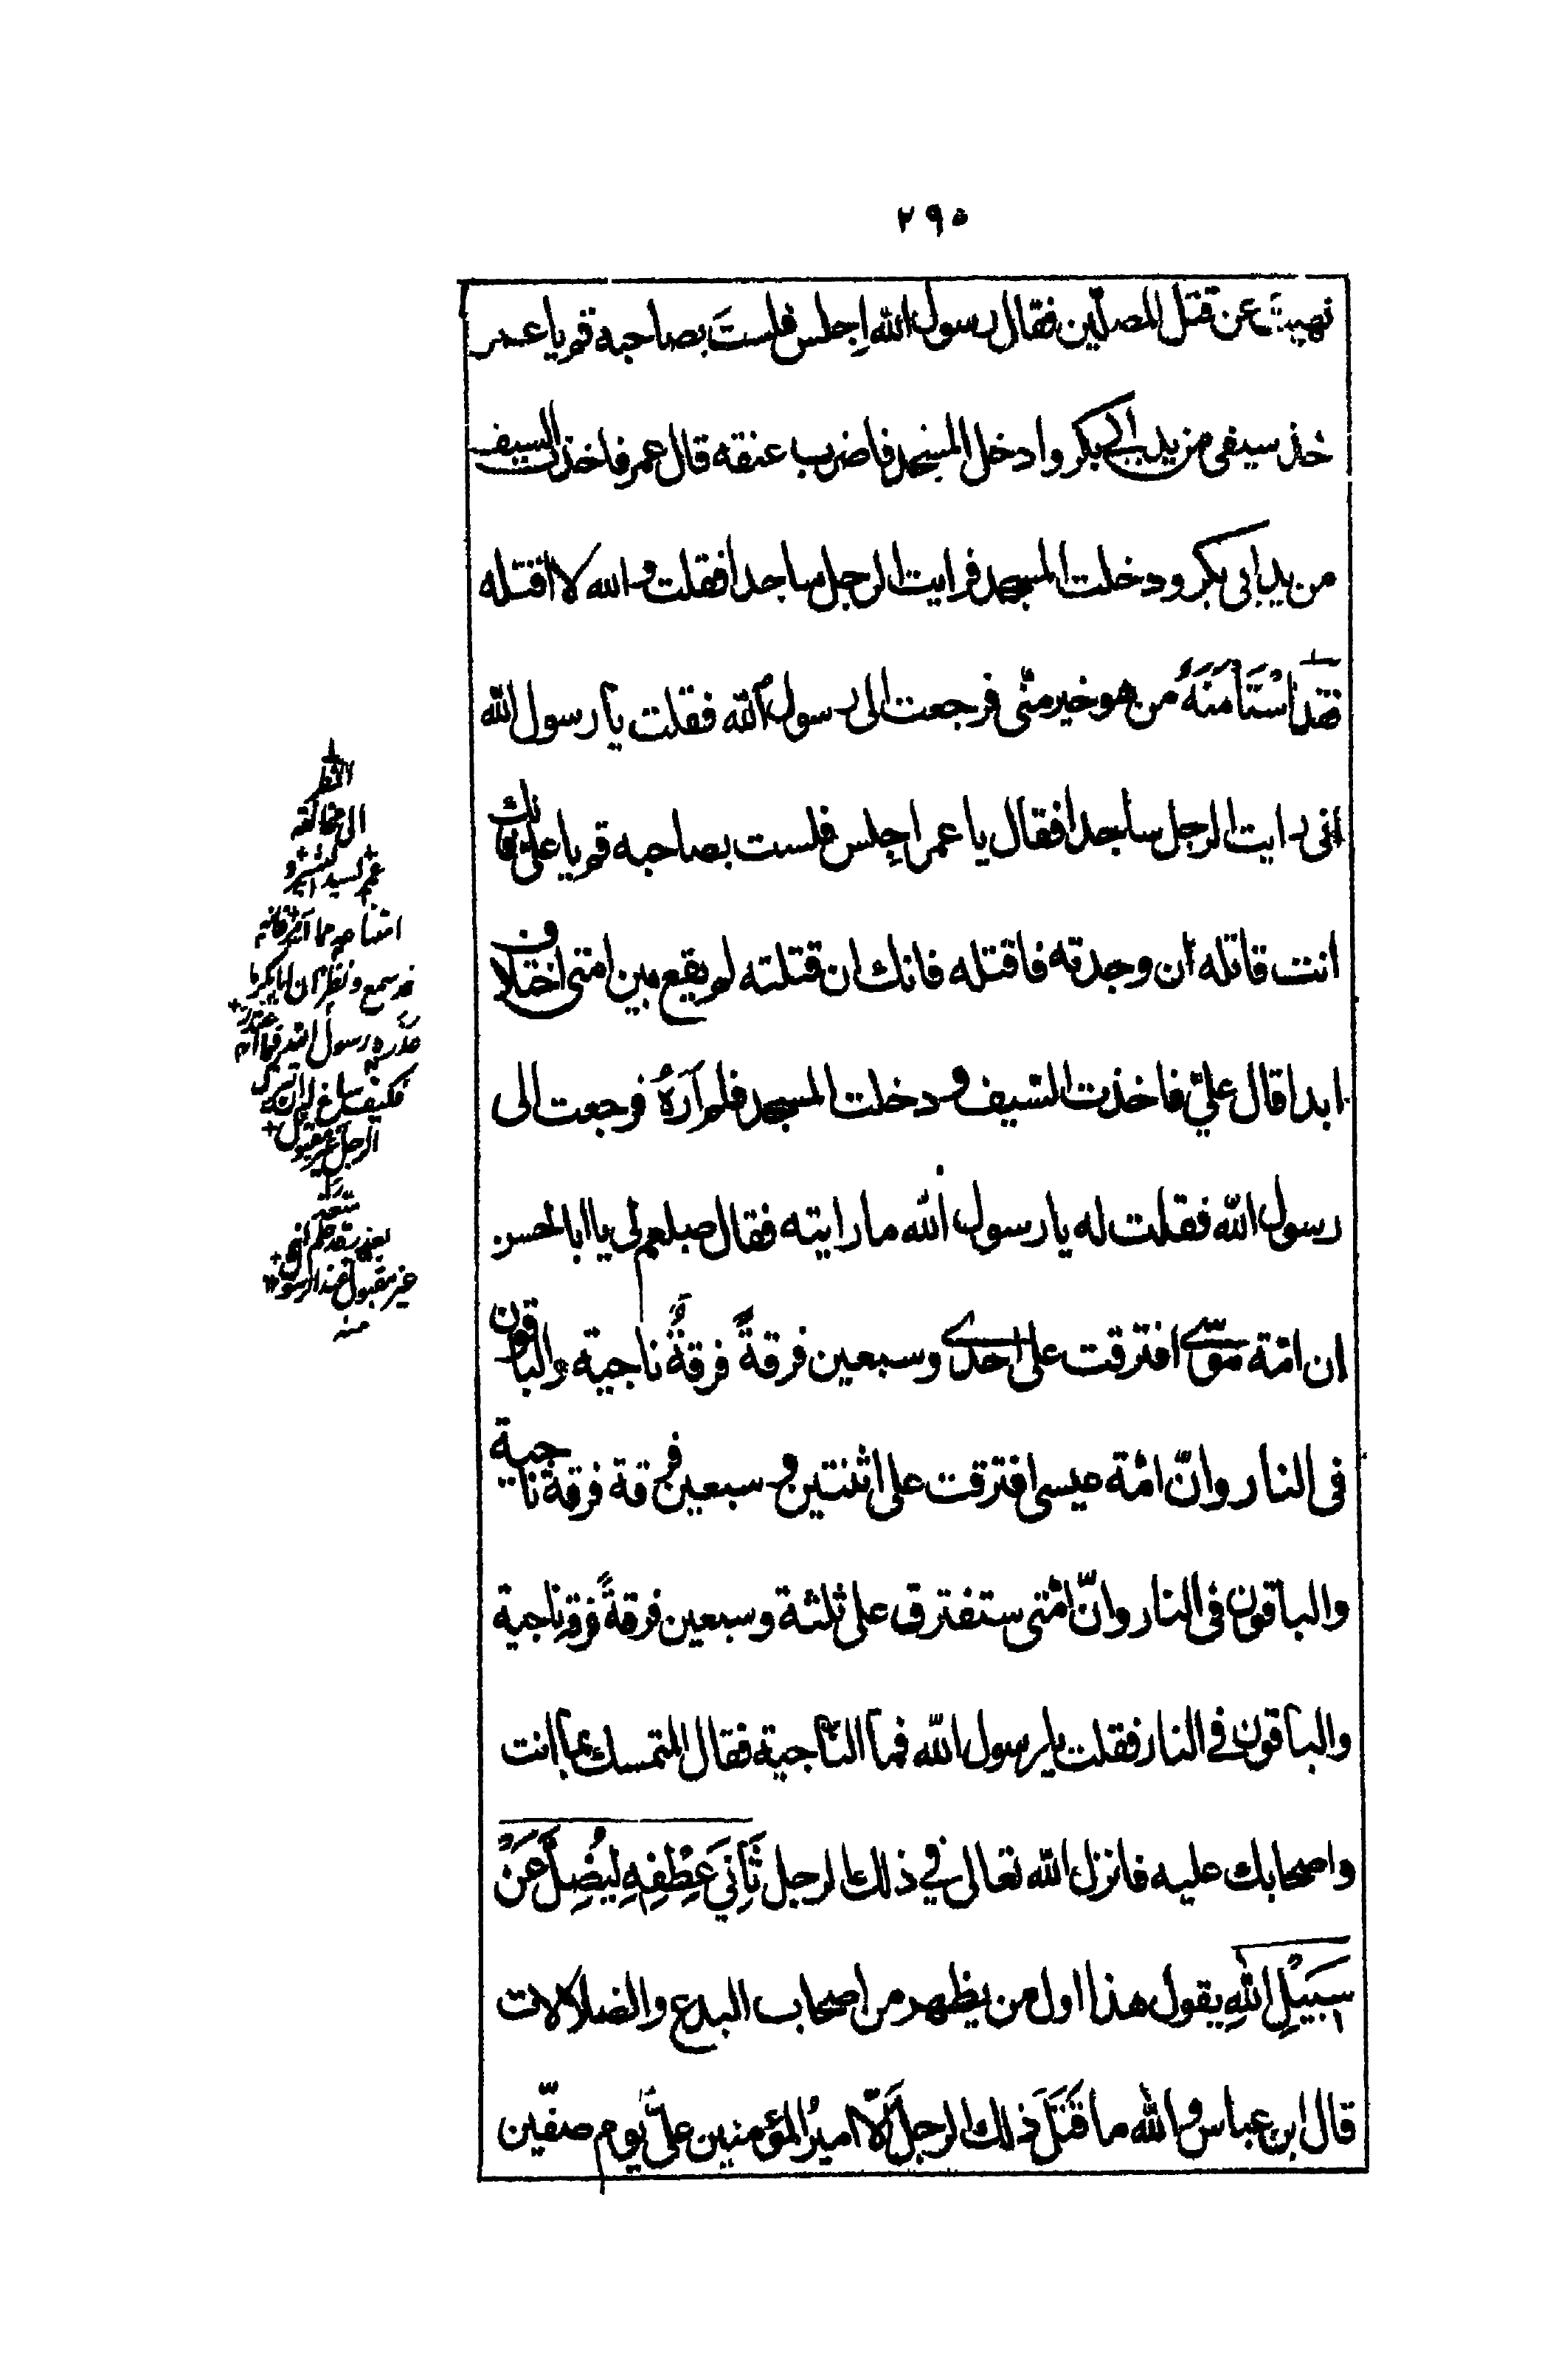 ٢٩٥
نهيت عن قتل المصلّين فقال رسول الله اِجلس فلستَ بصاحبه قم يا عمر
خذ سيفى من يد ابى بكر وادخل المسجد فاضرب عنقه قال عمر فاخذت السيف
من يد ابى بكر ودخلت المسجد فرايت الرجل ساجدا فقلت والله لا اقتله
فقد اسْتَأمَنَهُ من هو خير منّى فرجعت الى رسول الله فقلت يا رسول الله
انى رايت الرجل ساجدا فقال يا عمر اجِلس فلست بصاحبه قم يا على فانك
انت قاتله ان وجدته فاقتله فانك ان قتلته لم يقع بين امتى اختلاف
ابدا قال علىّ فاخذت السّيف ودخلت المسجد فلم اَرَهُ فرجعت الى
رسول الله فقلت له يا رسول الله ما رايته فقال صلعم لى يا ابا الحسن
ان امّة موسى افترقت على احدى وسبعين فرقةً فرقةٌ ناجية والباقون
فى النار وانّ امّة عيسى افترقت على اثنتين وسبعين فرقة فرقة ناجية
والباقون فى النار وانّ امّتى ستفترق على ثلثة وسبعين فرقةً فرقة ناجية
والباقون فى النار فقلت يا رسول الله فما النّاجية فقال المتمسك بما انت
واصحابك عليه فانزل الله تعالى في ذلك الرجل ثَانِيَ عِطْفِهِ لِيُضِلَّ عَنْ
سَبِيْلِ اللهِ يقول هذا اول من يظهر من اصحاب البدع والضلالات
قال ابن عباس والله ما قَتَلَ ذلك الرجلَ اِلّا اميرُ المؤمنين علىّ يوم صفّين
انظر
الى مخالفة
رسول الله
فكيف
الرجل
غير مقبول
منه